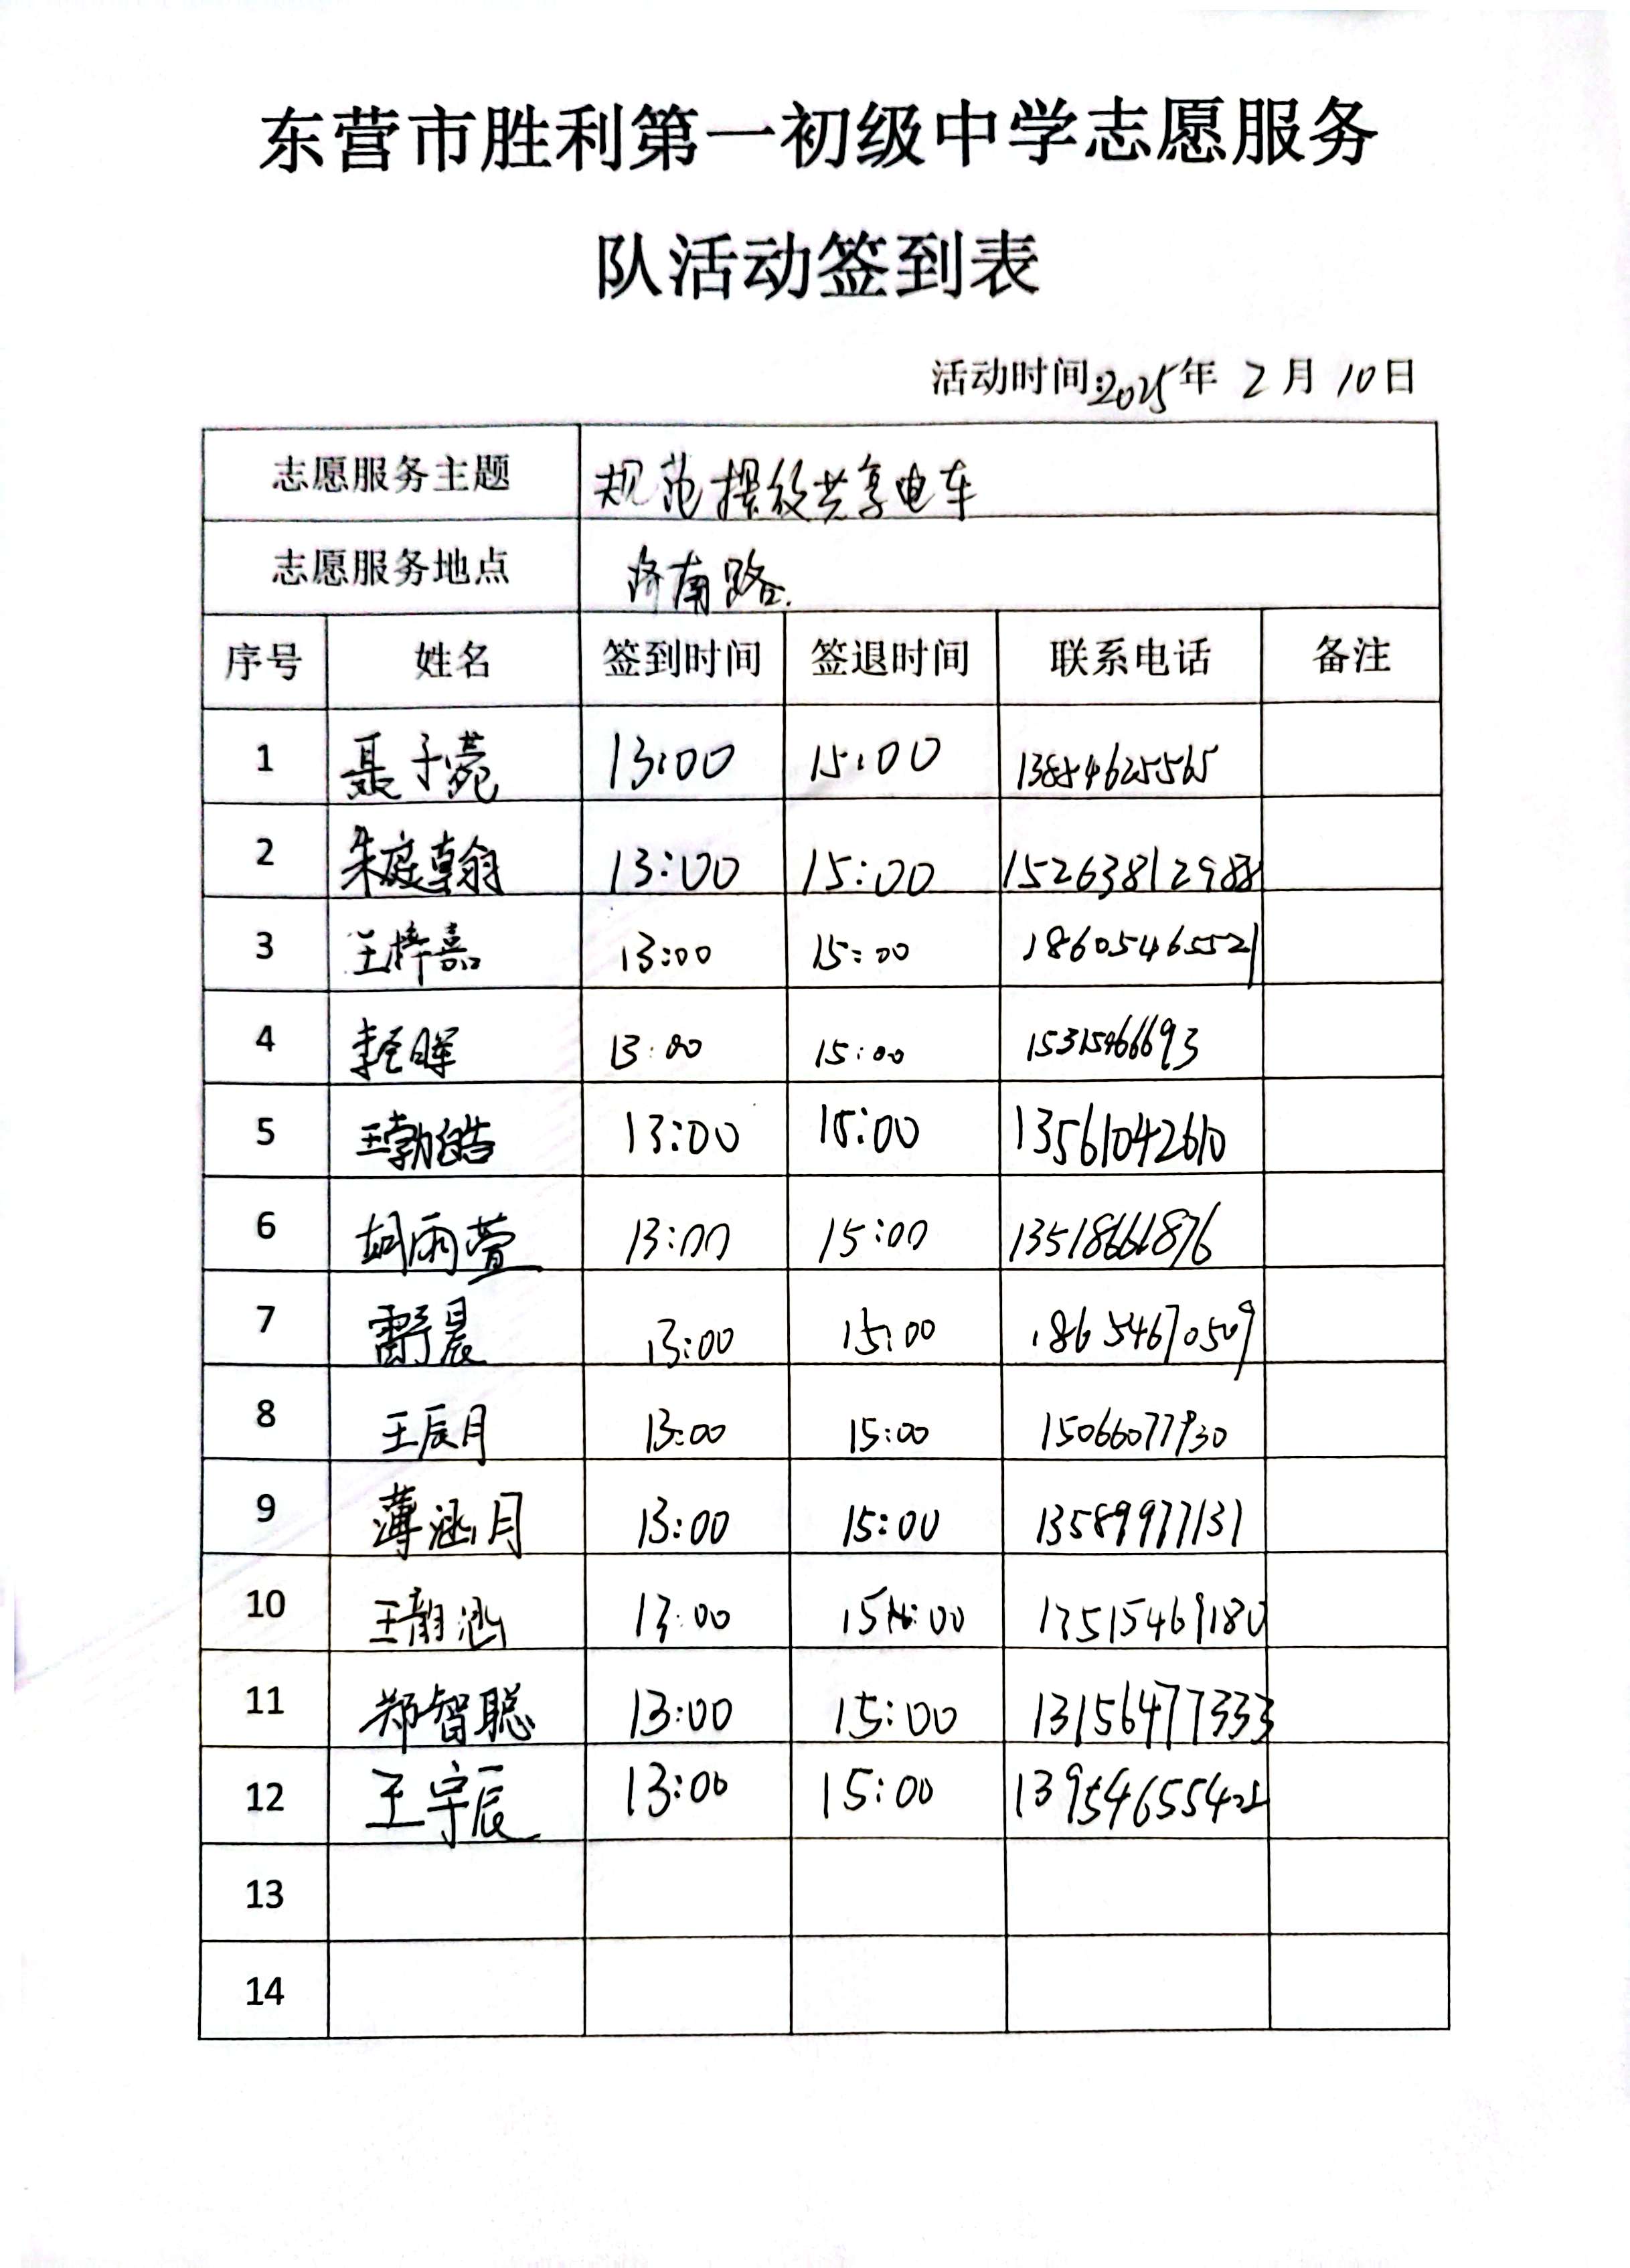 东营市胜利第一初级中学志愿服务
队活动签到表
活动时间:2025年 2月 10日
志愿服务主题 规范摆放共享电车
志愿服务地点 济南路.
序号 姓名 签到时间 签退时间 联系电话 备注
1 聂子菀 13:00 15:00 13854625565
2 朱庭翰 13:00 15:00 15263812988
3 王梓嘉 13:00 15:00 18605465521
4 13:00 15:00 15315466693
5 王勃皓 13:00 15:00 13561042610
6 胡雨萱 13:00 15:00 13518666876
7 雷子晨 13:00 15:00 18654670509
8 王辰月 13:00 15:00 15066077930
9 薄涵月 13:00 15:00 13589977131
10 王韵涵 13:00 15:00 13515469180
11 郑智聪 13:00 15:00 13156477333
12 王宇辰 13:00 15:00
13
14